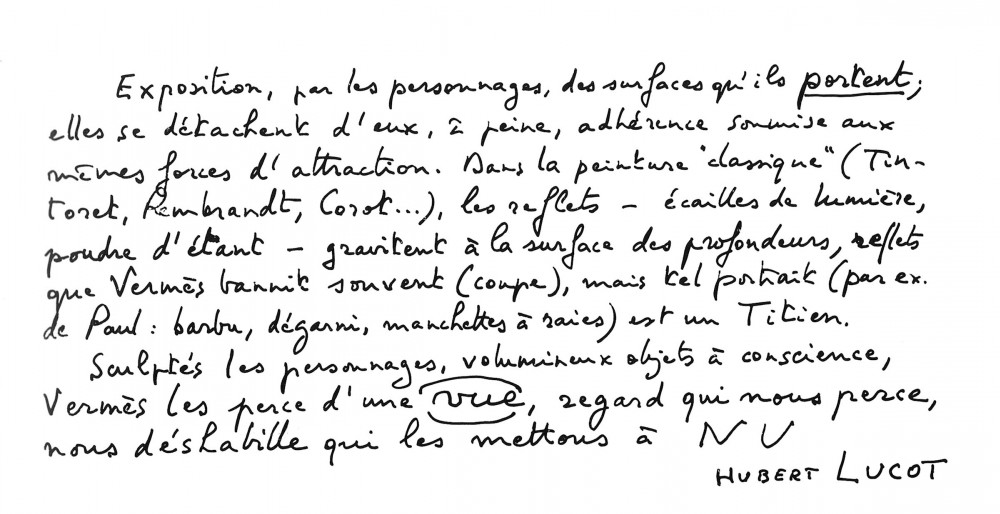 Exposition, par les personnages, des surfaces qu'ils portent;
elles se détachent d'eux, à peine, adhérence soumise aux
mêmes forces d'attraction. Dans la peinture "classique" (Tin-
toret, Rembrandt, Corot...), les reflets – écailles de lumière,
poudre d'étant – gravitent à la surface des profondeurs, reflets
que Vermès bannit souvent (coupe), mais tel portrait (par ex.
de Paul : barbu, dégarni, manchettes à raies) est un Titien.
Sculptés les personnages, volumineux objets à conscience,
Vermès les perce d'une vue, regard qui nous perce,
nous déshabille qui les mettons à NU
HUBERT LUCOT